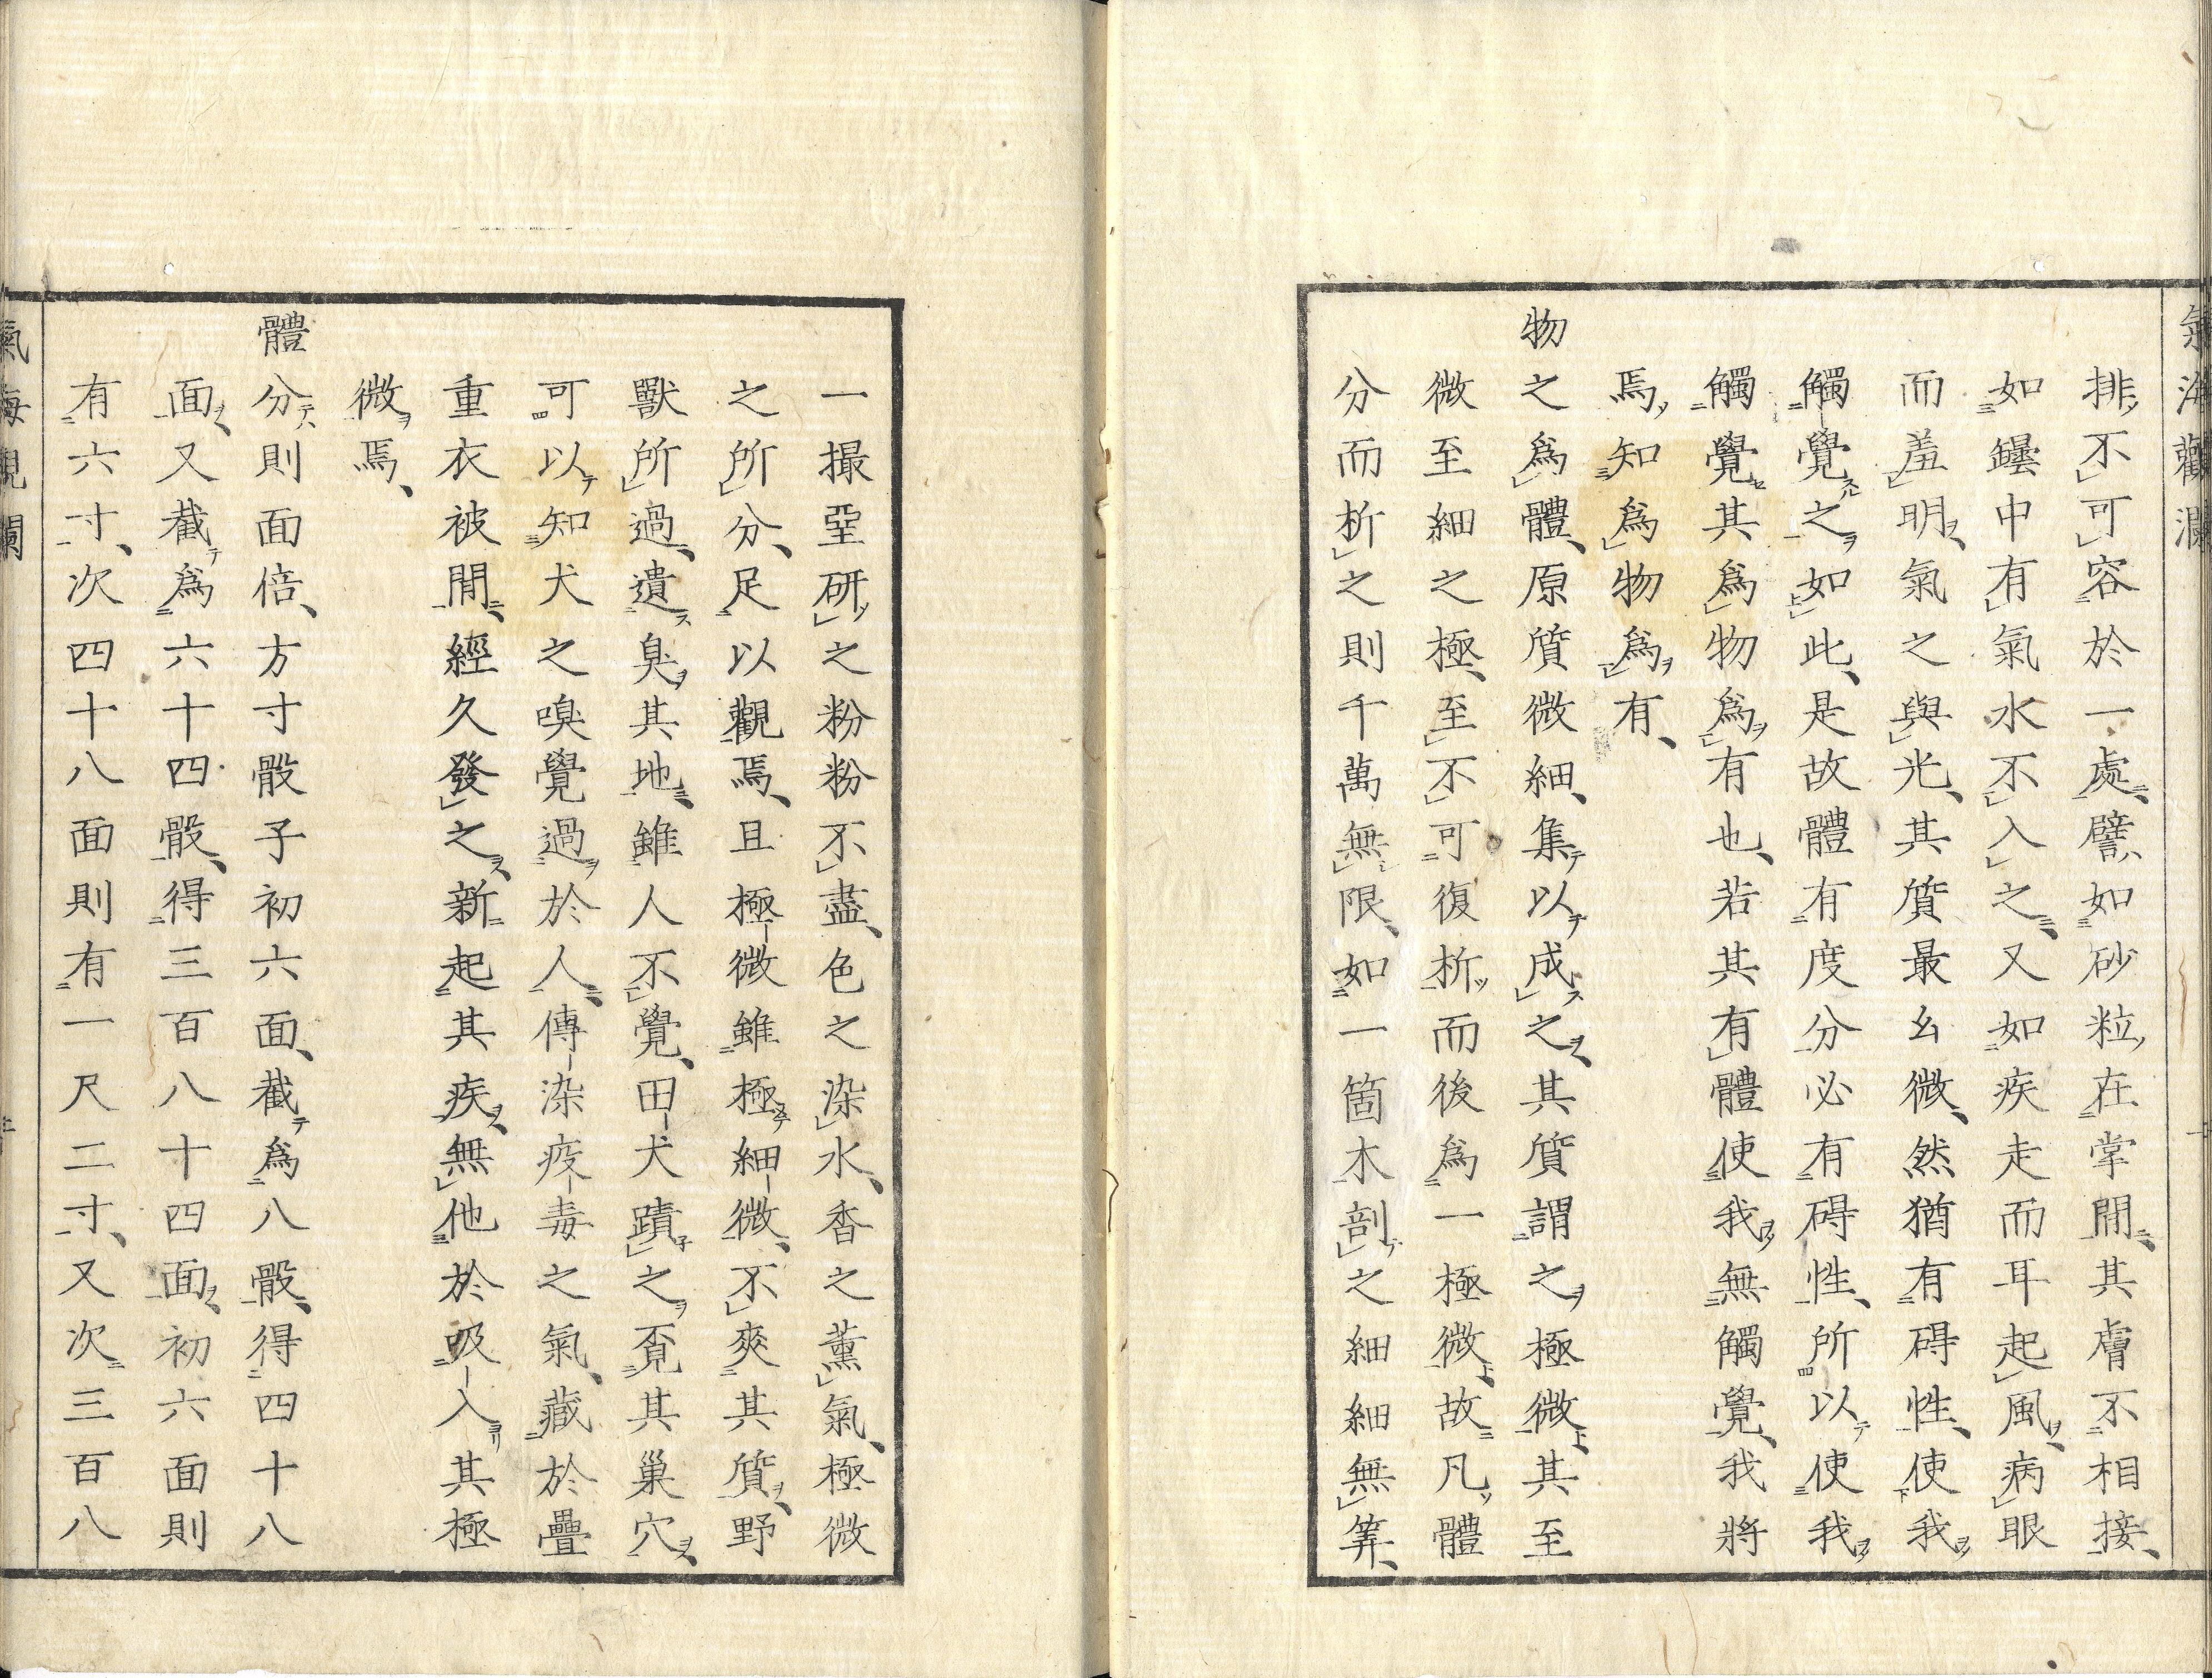 氣海觀瀾
排不可容於一處、譬如砂粒在掌間、其膚不相接、
如罎中有氣水不入之、又如疾走而耳起風、病眼
而羞明、氣之與光、其質最幺微、然猶有碍性、使我
觸覺之如此、是故體有度分必有碍性、所以使我
觸覺其爲物爲有也、若其有體使我無觸覺、我將
焉知爲物爲有、
物之爲體、原質微細、集以成之、其質謂之極微、其至
微至細之極、至不可復析而後爲一極微、故凡體
分而析之則千萬無限、如一箇木剖之細細無筭、
一撮堊研之粉粉不盡、色之染水、香之薰氣、極微
之所分、足以觀焉、且極微雖極細微、不爽其質、野
獸所過、遺臭其地、雖人不覺、田犬蹟之覓其巢穴、
可以知犬之嗅覺過於人、傳染疫毒之氣、藏於疊
重衣被間、經久發之、新起其疾、無他於吸入其極
微焉、
體分則面倍、方寸骰子初六面、截爲八骰、得四十八
面、又截爲六十四骰、得三百八十四面、初六面則
有六寸、次四十八面則有一尺二寸、又次三百八
氣海觀瀾